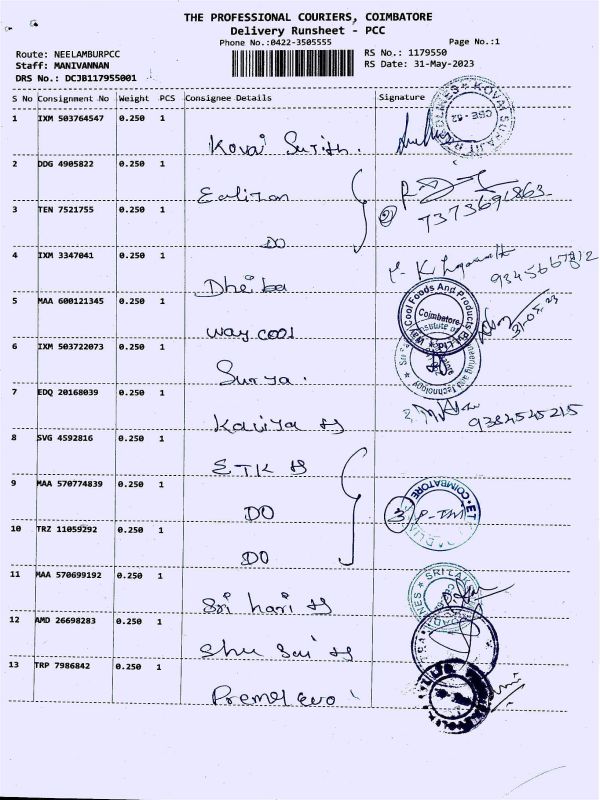 THE PROFESSIONAL COURIERS, COIMBATORE
Delivery Runsheet - PCC
Phone No.:0422-3505555 Page No.:1
Route: NEELAMBURPCC RS No.: 1179550
Staff: MANIVANNAN RS Date: 31-May-2023
DRS No.: DCJB117955001
S No Consignment No Weight PCS Consignee Details Signature
1 IXM 503764547 0.250 1
Kovai
2 DDG 4905822 0.250 1
3 TEN 7521755 0.250 1
7373691863
DO
4 IXM 3347041 0.250 1
Dheeba
5 MAA 600121345 0.250 1
Way Cool Foods And Products Pvt Ltd
Coimbatore
way cool 31-05-23
6 IXM 503722073 0.250 1
Surya
7 EDQ 20168039 0.250 1
Kaviya 9384545215
8 SVG 4592816 0.250 1
ETK
9 MAA 570774839 0.250 1
DO 3
10 TRZ 11059292 0.250 1
DO
11 MAA 570699192 0.250 1
Sri hari
12 AMD 26698283 0.250 1
Shu Sai
13 TRP 7986842 0.250 1